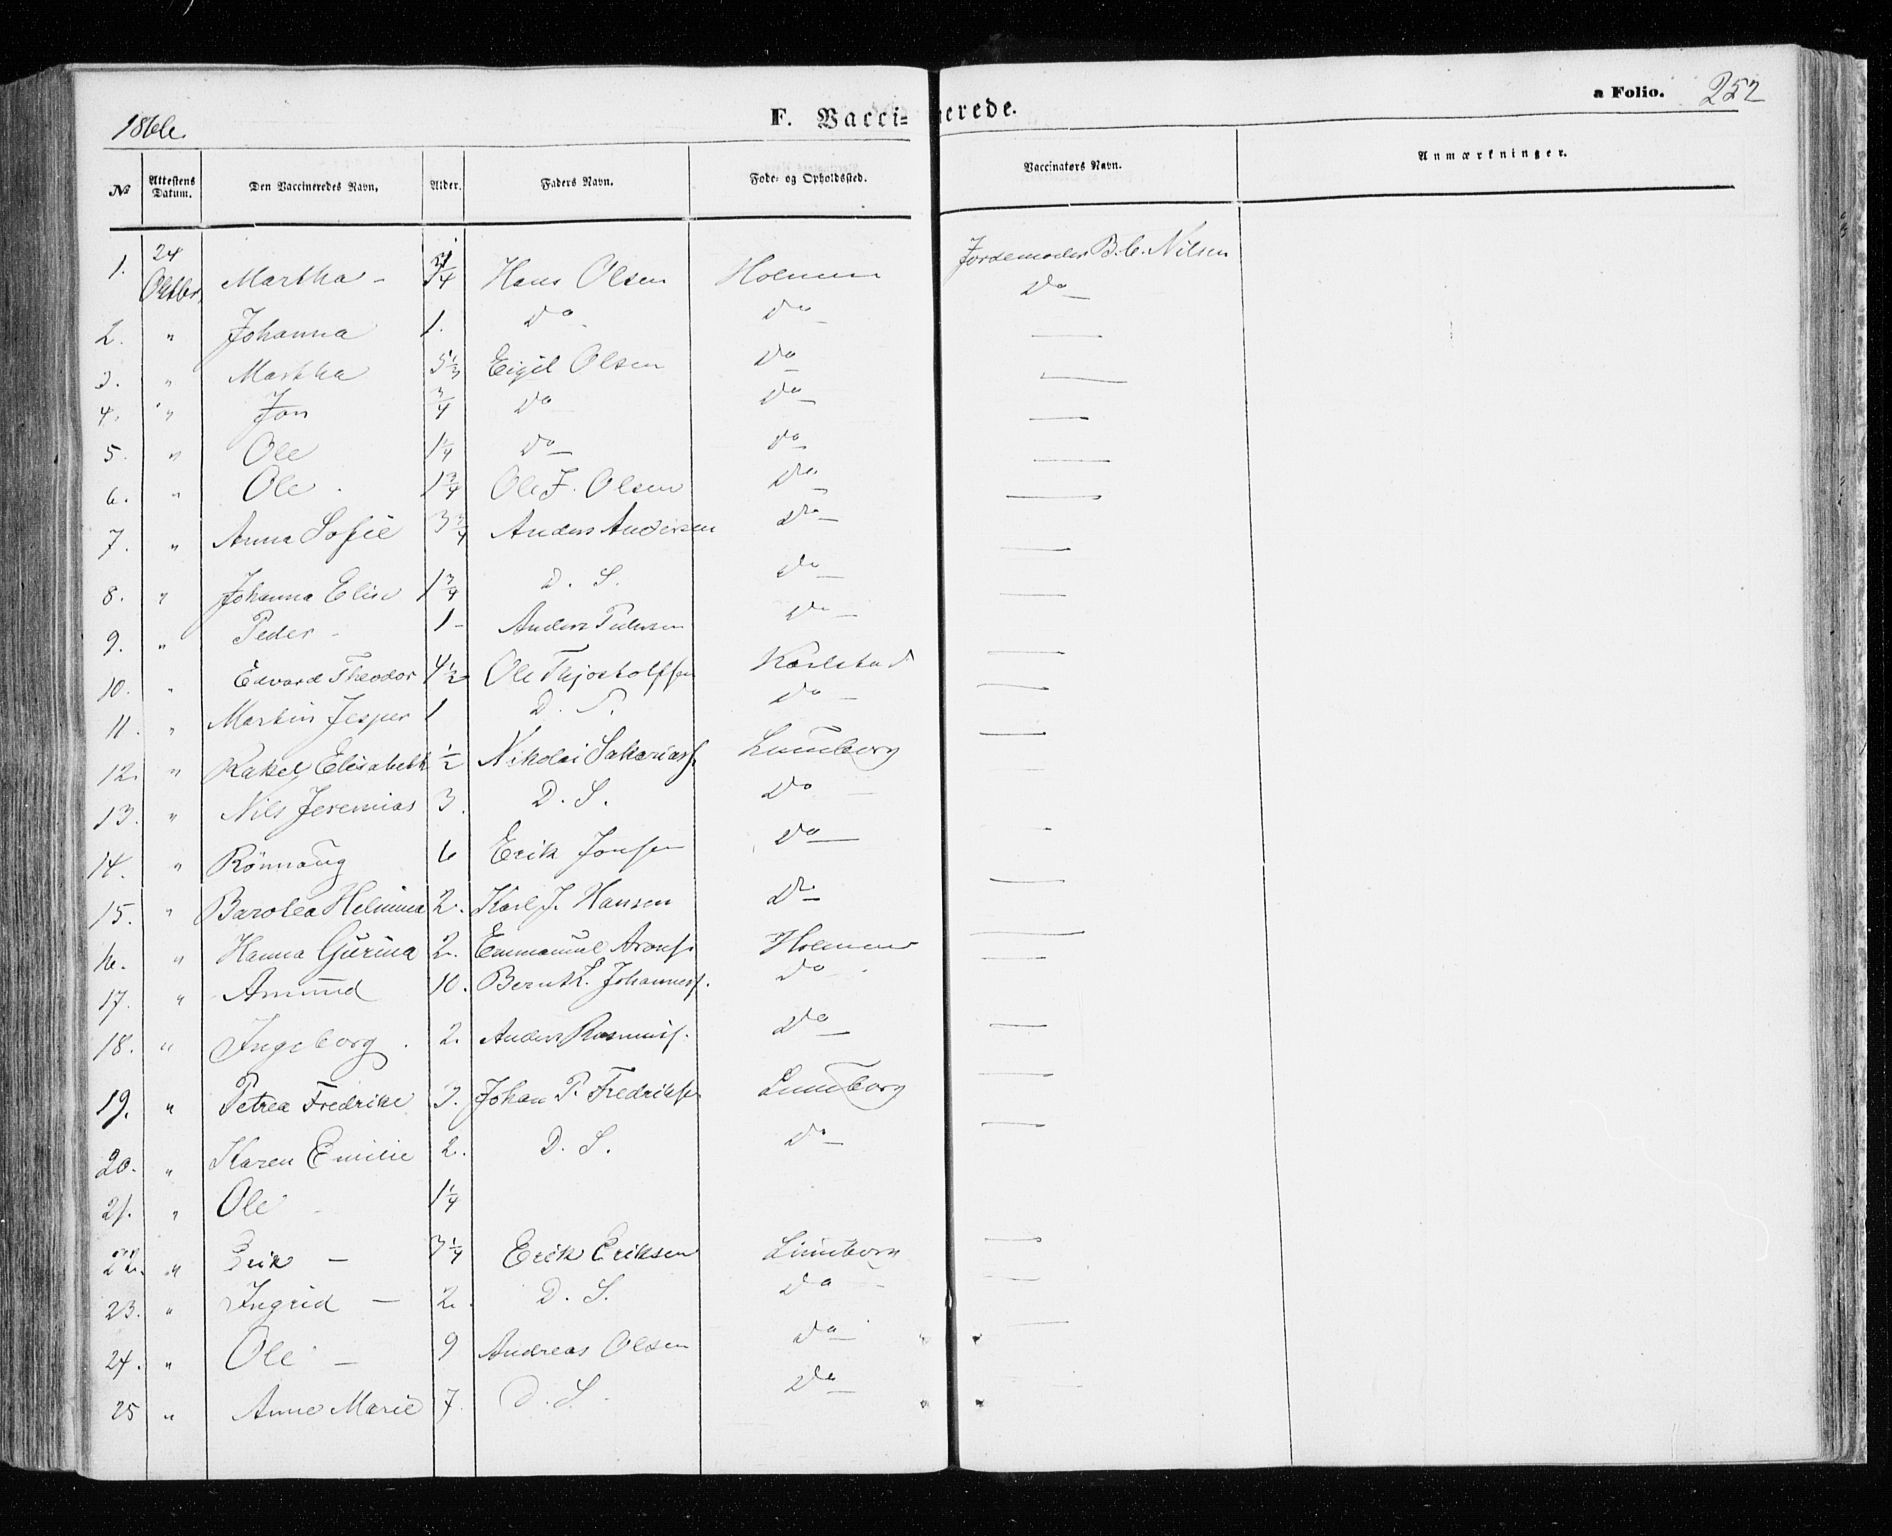 1866. F. Vaccinerede. a Folio. 252
No Attestens Datum. Den Vaccineredes Navn, Alder. Faders Navn. Føde- og Opholdssted. Vaccinatørs Navn. Anmærkninger.
1. 24 Oktbr. Martha - Hans Olsen Holmen Jordemoder B. C. Nilsen
2. " Johanna 1. Do Do Do
3. " Martha 5 1/3 Eigil Olsen Do —
4. " Jon 3/4 Do Do —
5. " Ole 1 1/4 Do Do —
6. " Ole 1 3/4 Ole J. Olsen Do —
7. " Anna Sofie 3 3/4 Anders Andersen Do —
8. " Johanna Elise 1 3/4 D. S. Do —
9. " Peder - 1 - Anders Pedersen Do —
10. " Edvard Theodor 4 1/2 Ole Thjostolfsen Karlstad —
11. " Martin Jesper 1 D. S. Do —
12. " Rakel Elisabeth 1/2 Nikolai Sakarias. Lunneborg —
13. " Nils Jeremias 3. D. S. Do —
14. " Rönnaug 6 Erik Jonsen Do —
15. " Barolea Helmina 2. Karl J. Hansen Do —
16. " Hanna Gurina 2. Emmanuel Arons. Holmen —
17. " Amund 10. Bernt L. Johannes. Do —
18. " Ingeborg. 2. Anders Rasmus. Do —
19. " Petrea Fredrike 3. Johan P. Fredriksen Lunneborg —
20. " Karen Emilie 2. D. S. Do —
21. " Ole 1 1/4
22. " Erik — 3 1/4 Erik Eriksen Lunneborg —
23. " Ingrid — 2. D. S. Do —
24. " Ole — 9 Andreas Olsen Do —
25 " Anne Marie 7. D. S. Do